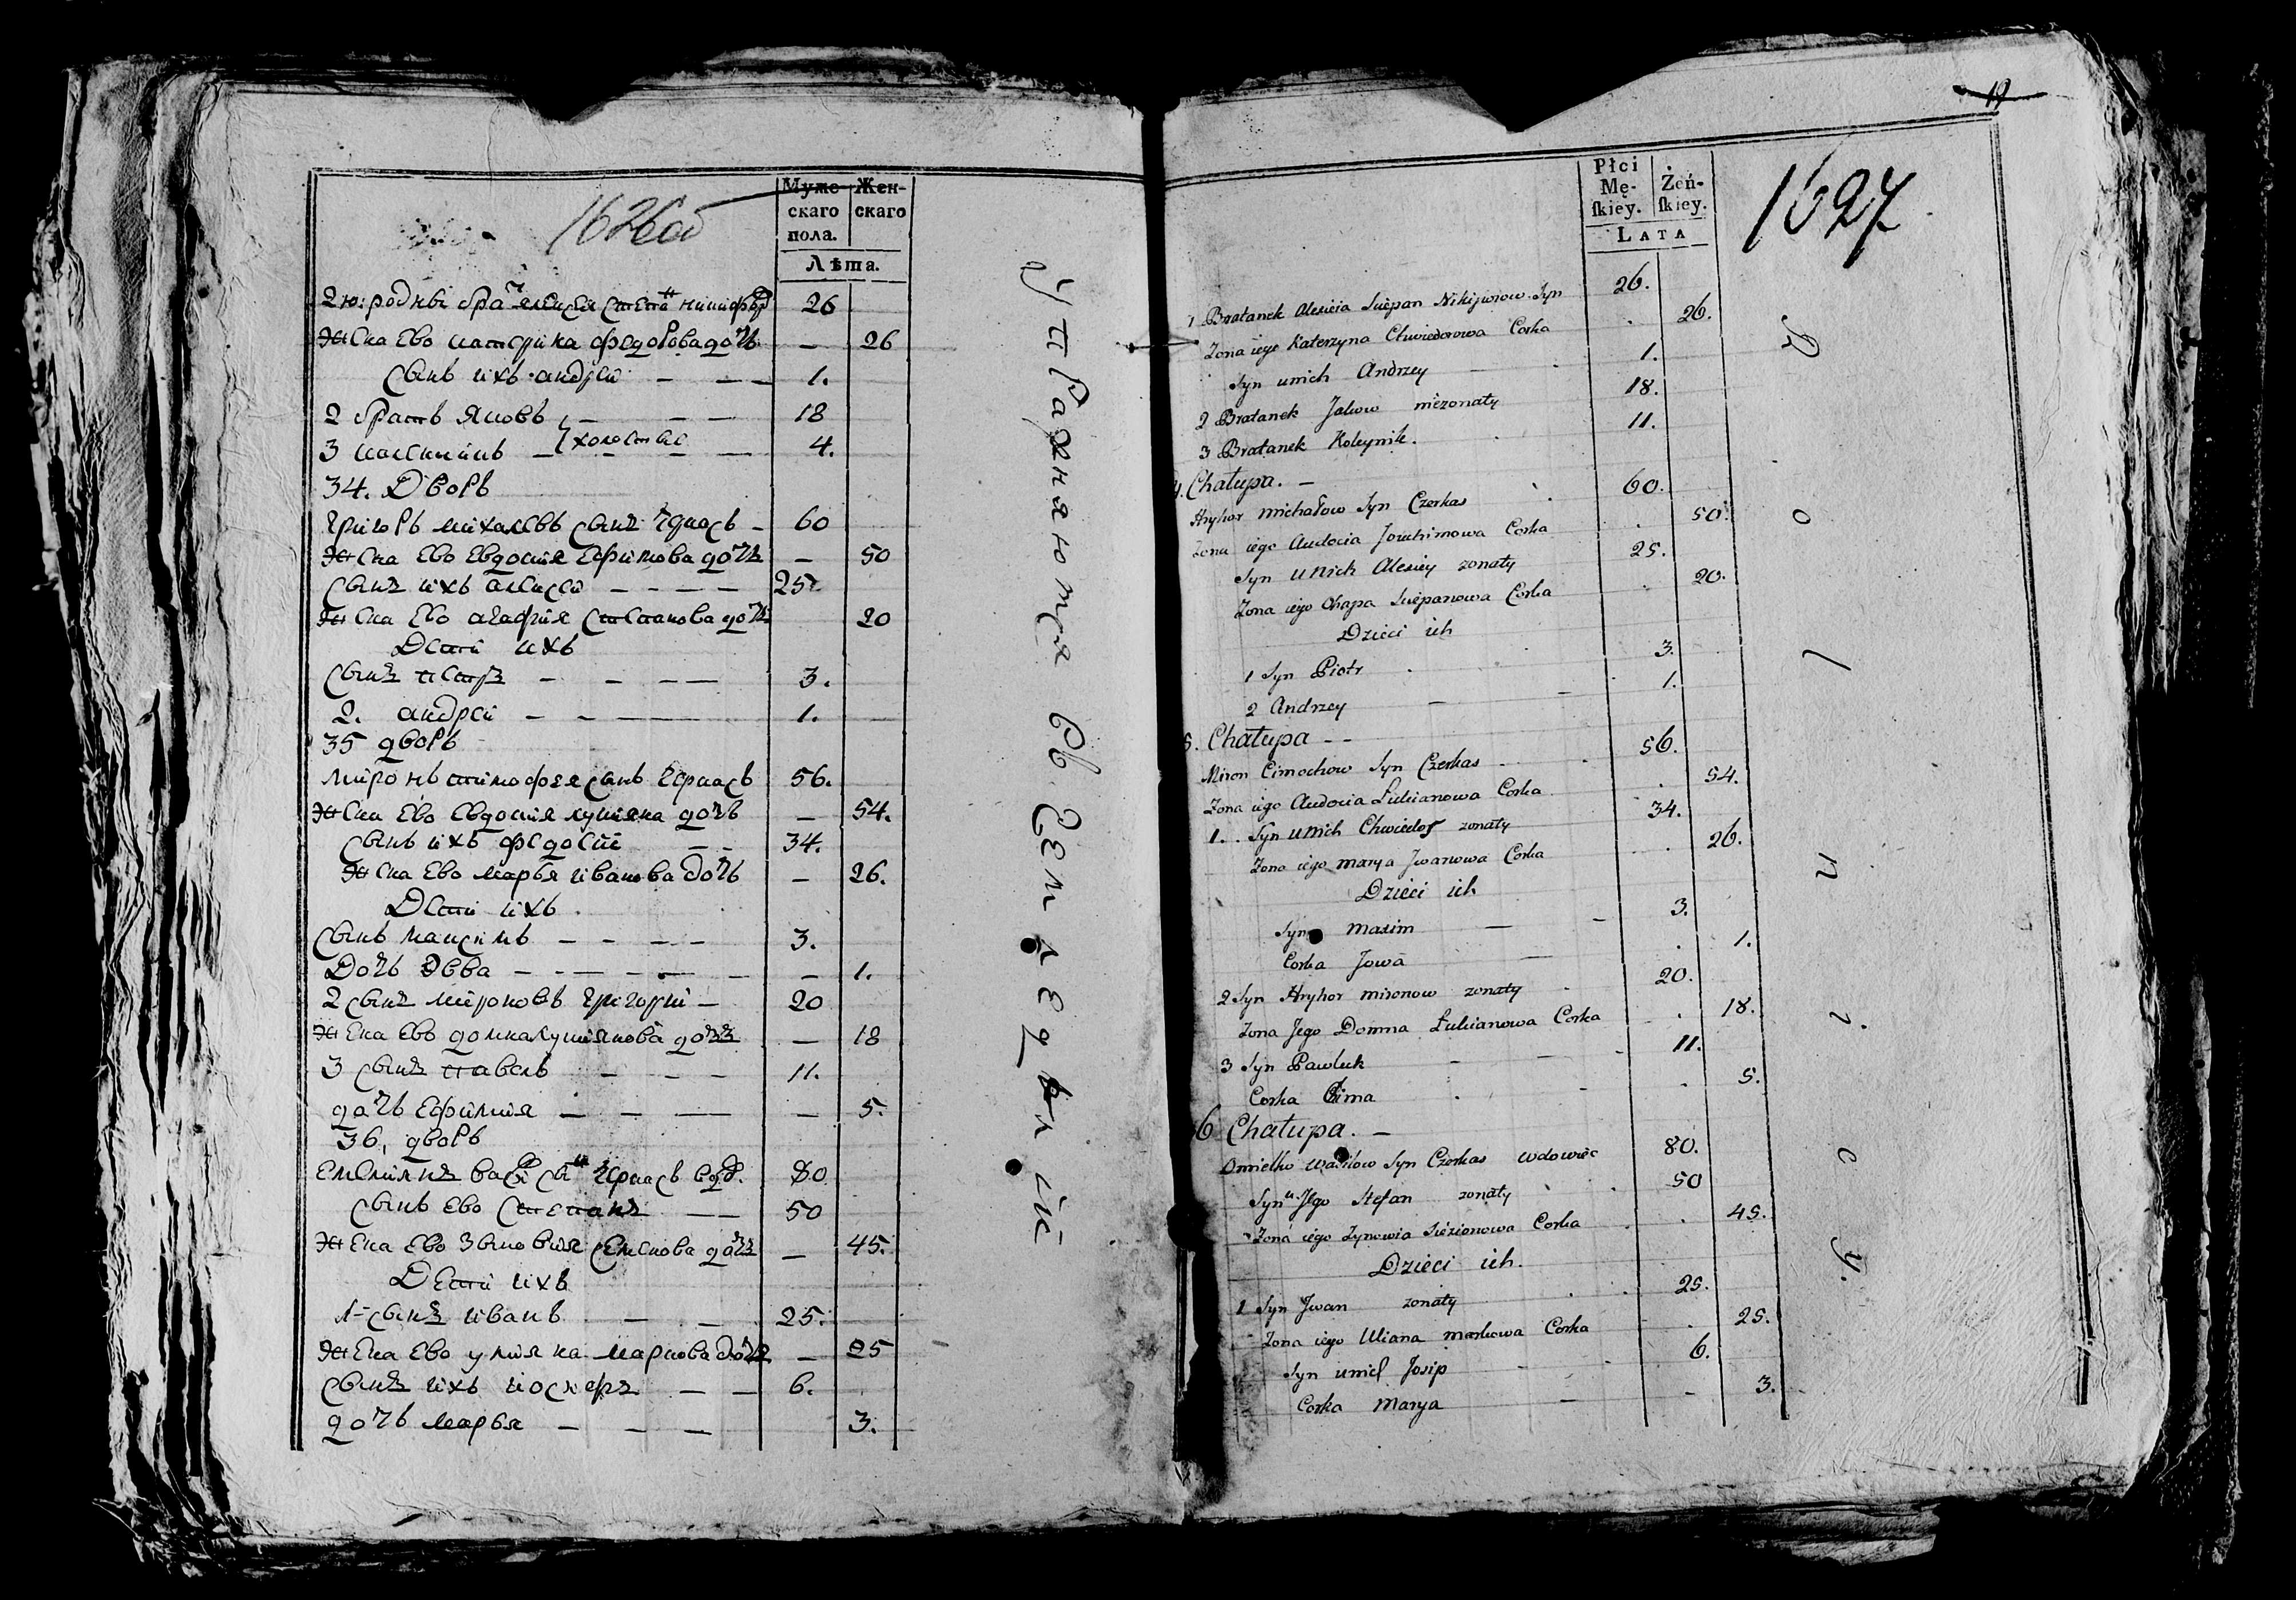 1626об
Мужескаго пола. Женскаго
Лѣта.
2ю: родны бра т алексея степа н никифор 26
жена ево катерина федорова дочь — 26
сынъ ихъ андрей — — — 1.
2 братъ яковъ — — — 18
3 калѣникъ — холостые — — 4.
34. Дворъ
григоръ михалевъ сынъ черкасъ — 60
жена ево евдокия ефимова дочъ — 50
сынъ ихъ алексей — — — — 25.
жена ево агафия степанова дочъ 20
Дети ихъ
сынъ петръ — — — — 3.
2. андрей — — — — 1.
35 дворъ
миронъ тимофея сынъ черкасъ 56.
жена ево евдокия лукияна дочъ — 54.
сынъ ихъ федосей — — 34.
жена ево марья иванова дочъ — 26.
Дети ихъ
сынъ максимъ — — — — 3.
Дочъ Эвва — — — — — — 1.
2 сынъ мироновъ григорий — 20
жена ево домна лукиянова дочъ — 18
3 сынъ павелъ — — — 11.
дочъ ефимия — — — — 5.
36, дворъ
емелиянъ васи сы н черкасъ вдо. 80
сынъ ево степанъ — — 50
жена ево зѣновия семенова дочъ — 45.
Дети ихъ
1-сынъ иванъ — — 25.
жена ево улияна маркова дочъ — 25
сынъ ихъ иосифъ — — 6.
дочъ марья — — — 3.
Упражняются въ земледѣлïи
19
Płci Mę-ſkiey. Żeń-ſkiey.
LATA
1627
1 Bratanek Alexieia Sciepan Nikiforow Syn 26.
Zona iego Katerzyna Chwiedorowa Corka . 26.
Syn unich Andrzey — . 1.
2 Bratanek Jakow niezonaty 18.
3 Bratanek Koleynik. . 11.
4. Chałupa. —
Hryhor Michałow Syn Czerkas . 60.
Zona iego Audocia Jouchimowa Corka . 50.
Syn unich Alexiey zonaty 25.
Zona iego Ahapa Sciepanowa Corka . 20.
Dzieci ich
1 Syn Piotr . . 3.
2 Andrzey — — 1.
5. Chałupa - -
Miron Cimochow Syn Czerkas . . 56.
Zona iego Audocia Łukianowa Corka . . 54.
1. . Syn unich Chwiedor zonaty 34.
Zona iego Marya Jwanowa Corka . . 26.
Dzieci ich
Syn Maxim — — 3.
Corka Jowa — . 1.
2 Syn Hryhor Mironow zonaty . 20.
Zona Jego Domna Łukianowa Corka . 18.
3 Syn Pawluk — — 11.
Corka Chima . - . 5.
6 Chałupa. —
Omielko Wasilow Syn Czerkas wdowiec 80.
Syn Jego Stefan zonaty . . 50
Zona iego Zynowia Siezionowa Corka . . 45.
Dzieci ich.
1 Syn Jwan zonaty . . 25.
Zona iego Uliana Markowa Corka . 25.
Syn unich Josip - . 6.
Corka Marya — - 3.
Rolnicy.